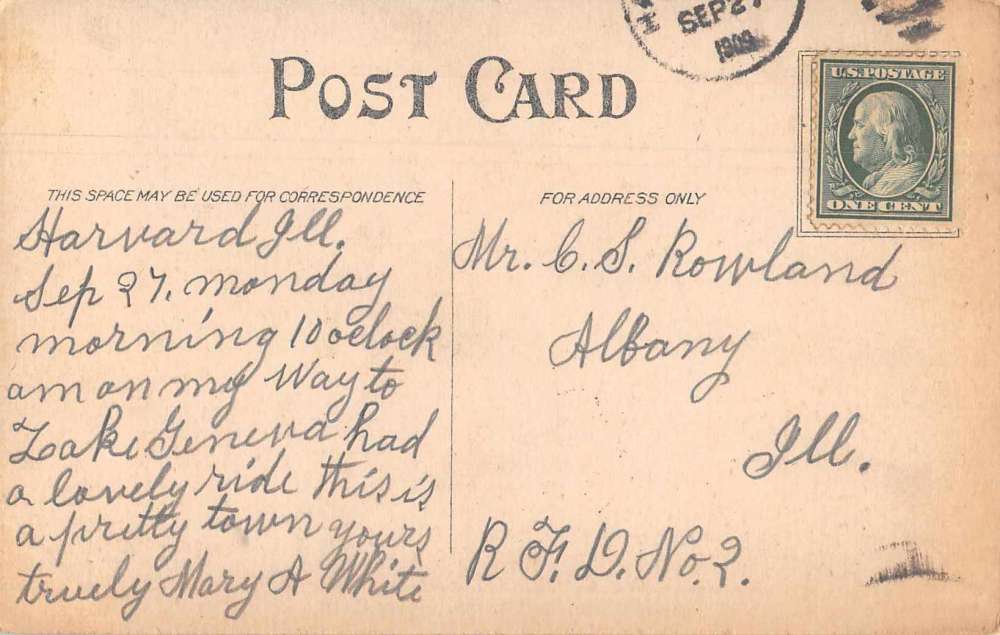 SEP 27
1909
POST CARD
U.S. POSTAGE
ONE CENT
THIS SPACE MAY BE USED FOR CORRESPONDENCE
Harvard Ill.
Sep 27. monday
morning 10 oclock
am on my Way to
Lake Geneva had
a lovely ride this is
a pretty town yours
truely Mary A White
FOR ADDRESS ONLY
Mr. C. S. Rowland
Albany
Ill.
R. F. D. No. 2.